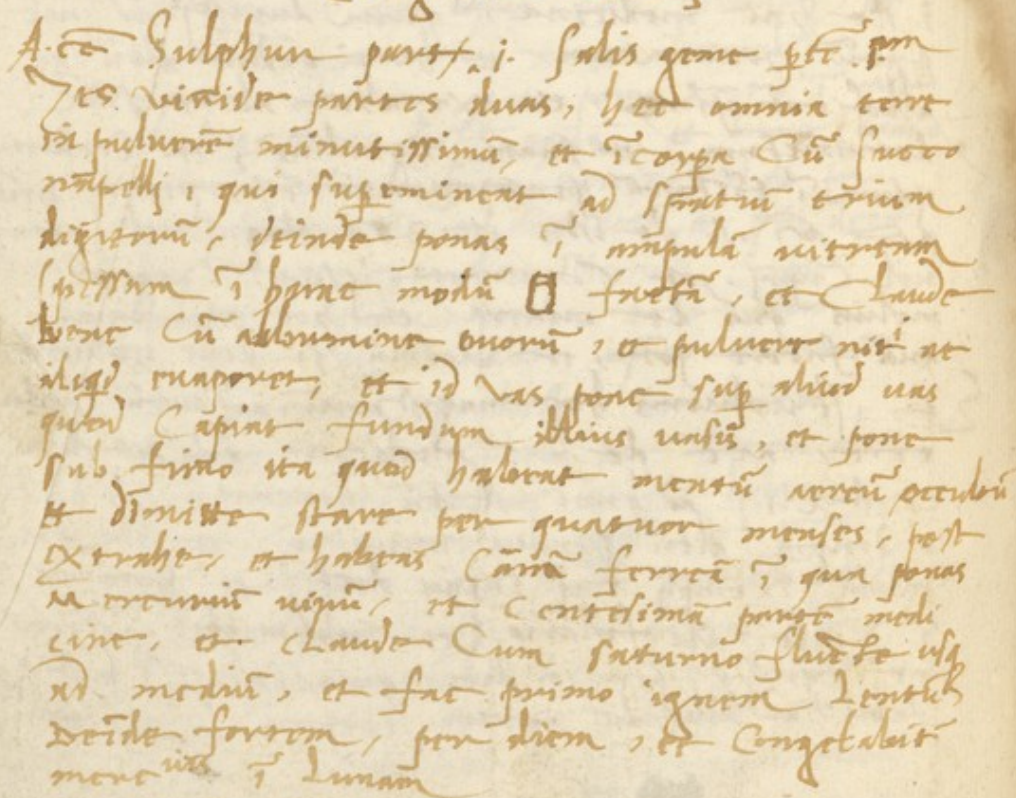 A.cē Sulphur part. j. Salis geme ꝑtē
viride partes duas, hec omnia tere
in pulverē minutissimū, et īcorpa Cū succo
napelli, qui supemineat ad spatiū trium
digitorū, deinde ponas ī ampulā vitream
spessam ī hunc modū factā, et Claude
bene Cū albumine ovorū, et pulvere ac
evaporet, et id vas pone sup aliud vas
quod Capiat fundum illius vasis, et pone
sub fimo ita quod habeat aereū occultū
et dimitte stare per quatuor menses, post
extrahe, et habeas Cānā ferreā ī qua ponas
Mercuriū vivū, et Centesimā partē medi
cine, et Claude Cum saturno usq
ad mediū, et fac primo ignem Lentū
Deīde fortem, per diem, et Congelabit
ī Lunam